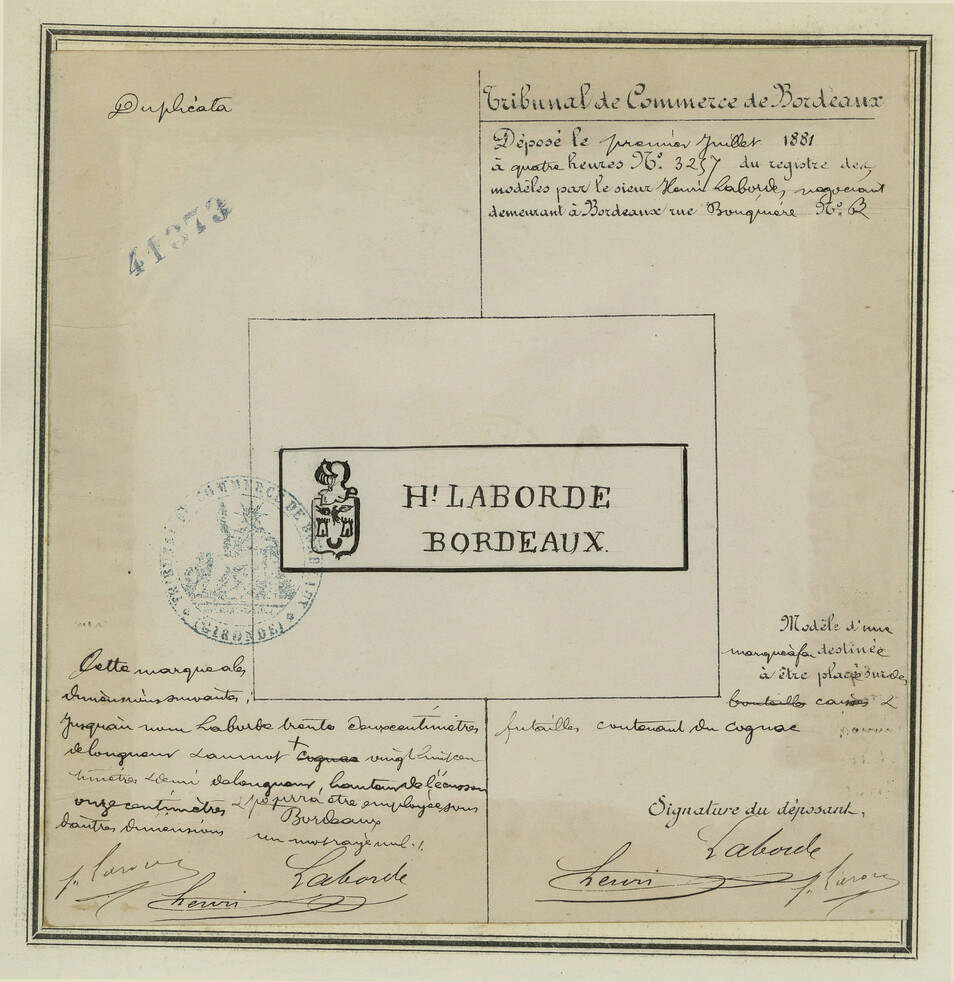 Duplicata
Tribunal de Commerce de Bordeaux
Déposé le premier Juillet 1881
à quatre heures N° 3257 du registre des
modèles par le sieur Henri Laborde, négociant
demeurant à Bordeaux rue Bouquière N°
41373
Hi LABORDE
BORDEAUX.
TRIBUNAL DE COMMERCE DE
(GIRONDE)
Modèle d'une
marque à feu destinée
à être placée sur des
bouteilles caisses &
futailles contenant du cognac
Cette marque a les
dimensions suivantes:
Jusqu'au nom Laborde trente deux centimètres
de longueur & au mot + cognac vingt huit cen
timètres & demi de longueur, hauteur de l'écusson
onze centimètres & pourra être employée sous
d'autres dimensions
Bordeaux
un mot rayé nul
Signature du déposant,
Laborde
Henri
Laborde
Henri